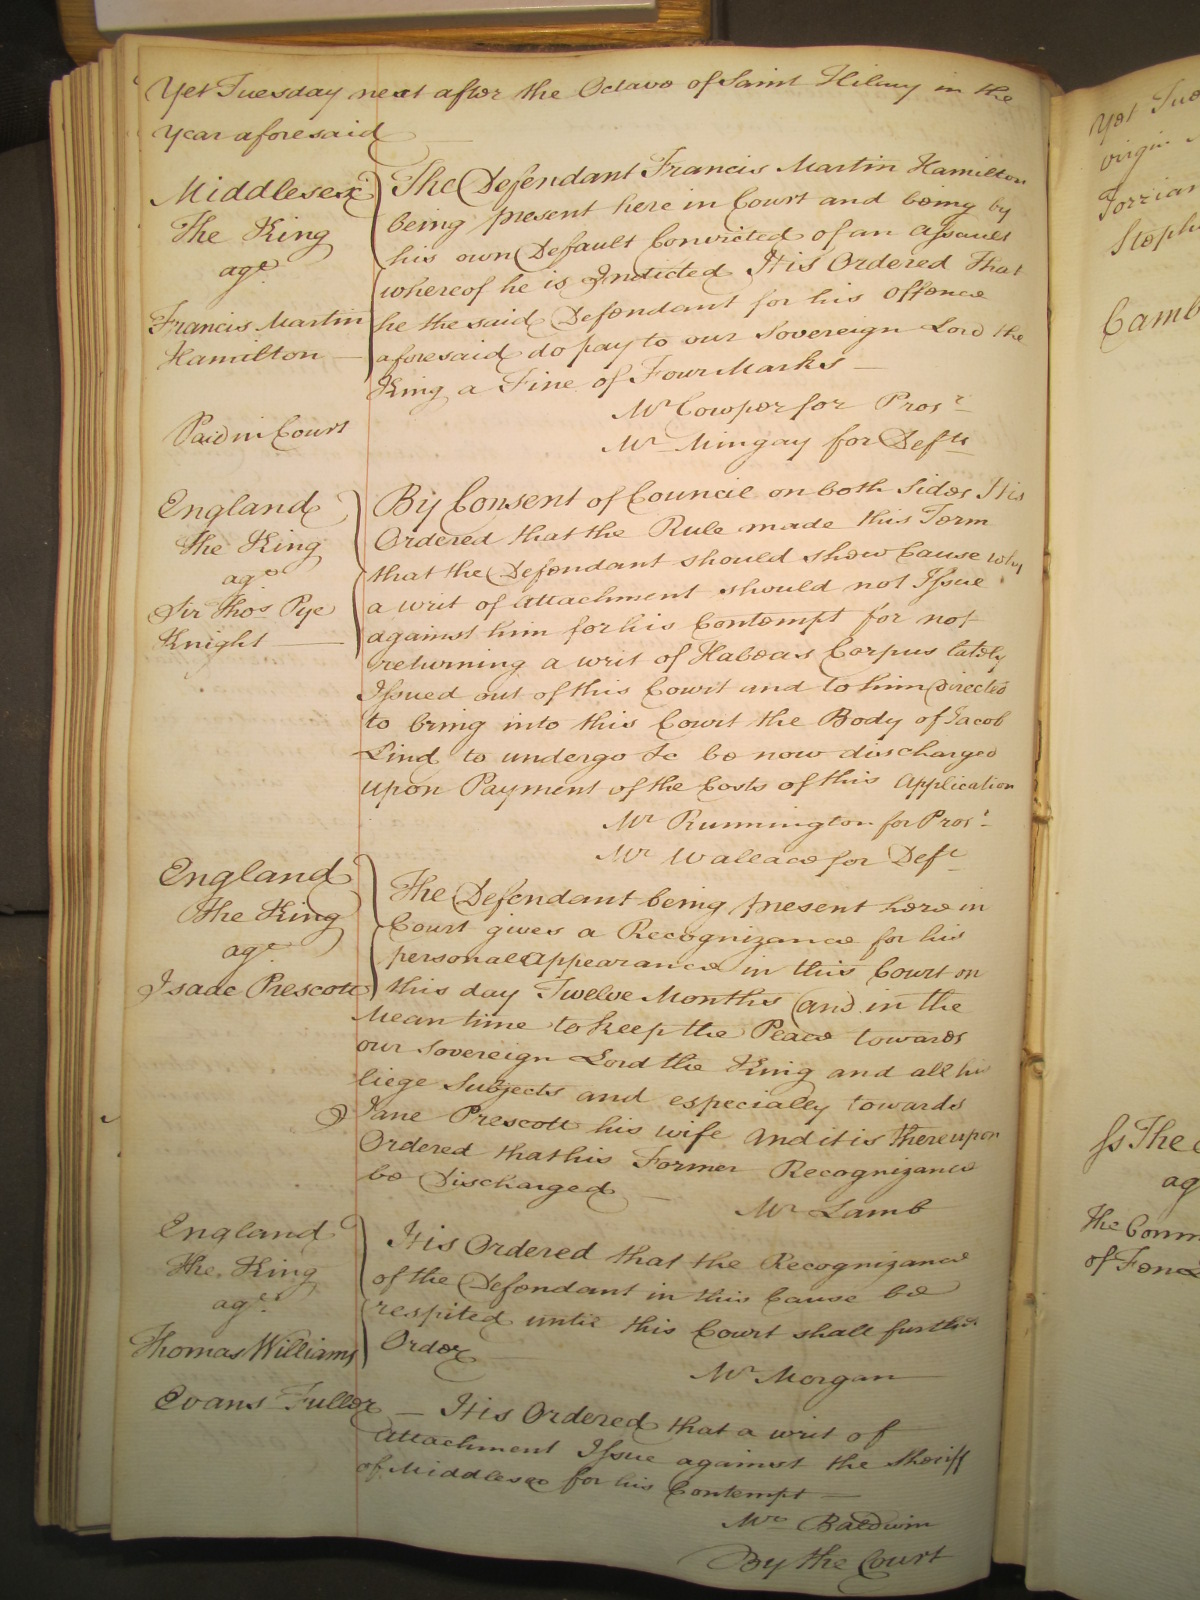 Yet Tuesday next after the Octave of Saint Hilary in the
Year aforesaid
Middlesex
The King
agt
Francis Martin
Hamilton
Paid in Court
The Defendant Francis Martin Hamilton
being present here in Court and being by
his own Default Convicted of an assault
whereof he is Indicted It is Ordered that
he the said Defendant for his offence
aforesaid do pay to our Sovereign Lord the
King a Fine of Four Marks
Mr Cowper for Prosr
Mr Mingay for Defts
England
The King
agt
Sir Thos Pye
Knight
By Consent of Council on both Sides It is
Ordered that the Rule made this Term
that the Defendant should shew Cause why
a writ of Attachment should not Issue
against him for his Contempt for not
returning a writ of Habeas Corpus lately
Issued out of this Court and to him Directed
to bring into this Court the Body of Jacob
Lind to undergo &c be now discharged
upon Payment of the Costs of this Application
Mr Runnington for Prosr
Mr Wallace for Deft
England
The King
agt
Isaac Prescott
The Defendant being present here in
Court gives a Recognizance for his
personal Appearance in this Court on
this day Twelve Months and in the
Mean time to keep the Peace towards
our Sovereign Lord the King and all his
liege Subjects and especially towards
Jane Prescott his wife And it is thereupon
Ordered that his Former Recognizance
be Discharged
Mr Lamb
England
The King
agt
Thomas Williams
It is Ordered that the Recognizance
of the Defendant in this Cause be
respited until this Court shall further
Order
Mr Morgan
Evans Fuller – It is Ordered that a writ of
Attachment Issue against the Sheriff
of Middlesex for his Contempt
Mr Baldwin
By the Court
Yet Tues
virgin
Stephe
Camb
The
ag
The Comm
of